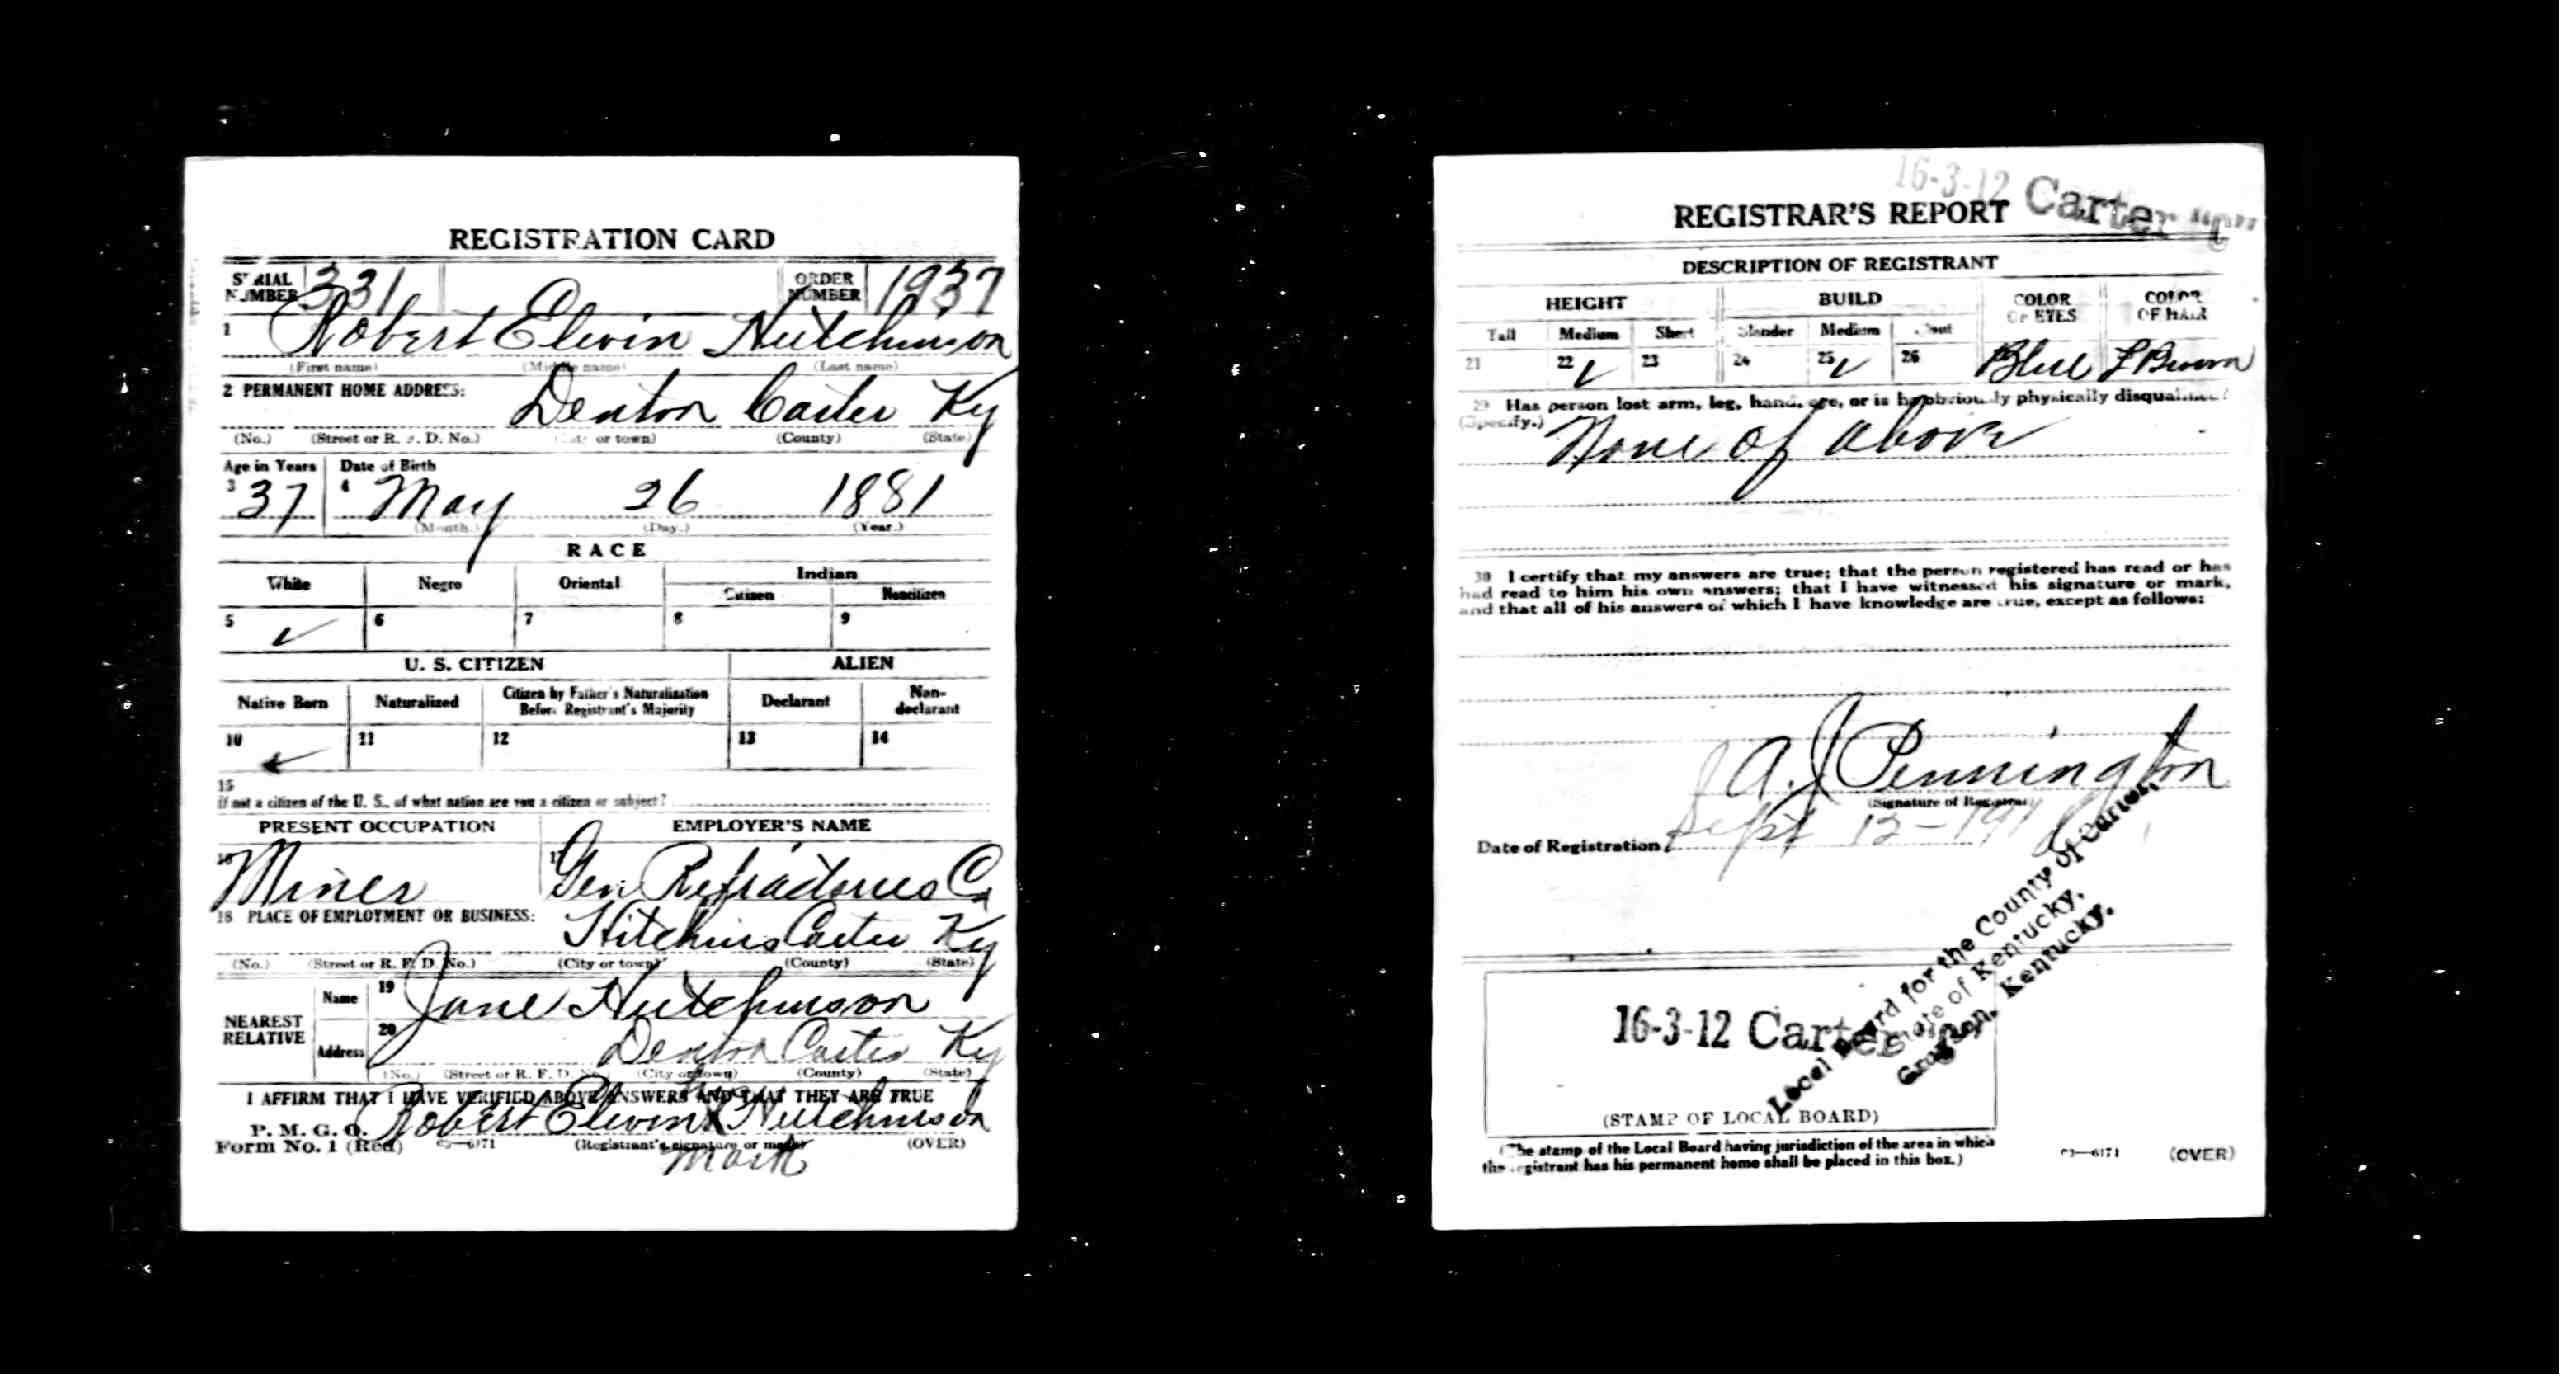 REGISTRATION CARD
SERIAL NUMBER 331 ORDER NUMBER 1937
1 Robert Elwin Hutchinson
(First name) (Middle name) (Last name)
2 PERMANENT HOME ADDRESS: Denton Carter Ky
(No.) (Street or R. F. D. No.) (City or town) (County) (State)
Age in Years Date of Birth
3 37 4 May 26 1881
(Month.) (Day.) (Year.)
RACE
White Negro Oriental Indian
Citizen Noncitizen
5 ✓ 6 7 8 9
U. S. CITIZEN ALIEN
Native Born Naturalized Citizen by Father's Naturalization Before Registrant's Majority Declarant Non-declarant
10 ✓ 11 12 13 14
15
If not a citizen of the U. S., of what nation are you a citizen or subject?
PRESENT OCCUPATION EMPLOYER'S NAME
16 Miner 17 Gen Refractories Co
18 PLACE OF EMPLOYMENT OR BUSINESS: Hitchins Carter Ky
(No.) (Street or R. F. D. No.) (City or town) (County) (State)
NEAREST RELATIVE
Name 19 Jane Hutchinson
Address 20 Denton Carter Ky
(No.) (Street or R. F. D. No.) (City or town) (County) (State)
I AFFIRM THAT I HAVE VERIFIED ABOVE ANSWERS AND THAT THEY ARE TRUE
P. M. G. O.
Form No. 1 (Red)
his
Robert Elwin X Hutchinson
(Registrant's signature or mark) (OVER)
mark
16-3-12 Carter
REGISTRAR'S REPORT
DESCRIPTION OF REGISTRANT
HEIGHT BUILD COLOR OF EYES COLOR OF HAIR
Tall Medium Short Slender Medium Stout
21 22 ✓ 23 24 25 ✓ 26 Blue L Brown
29 Has person lost arm, leg, hand, eye, or is he obviously physically disqualified?
(Specify.) None of above
30 I certify that my answers are true; that the person registered has read or has
had read to him his own answers; that I have witnessed his signature or mark,
and that all of his answers of which I have knowledge are true, except as follows:
A. J. Pennington
(Signature of Registrar)
Date of Registration Sept 12-1918
Local Board for the County of Carter,
State of Kentucky,
Grayson, Kentucky.
16-3-12 Carter
(STAMP OF LOCAL BOARD)
(The stamp of the Local Board having jurisdiction of the area in which
the registrant has his permanent home shall be placed in this box.)
03—6171 (OVER)